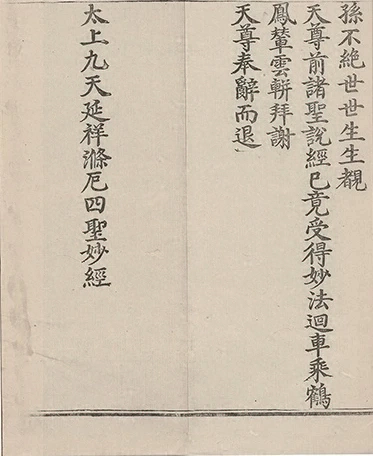 孫不絕世世生生覩
天尊前諸聖說經已竟受得妙法迴車乘鶴
鳳輦雲軿拜謝
天尊奉辭而退
太上九天延祥滌厄四聖妙經